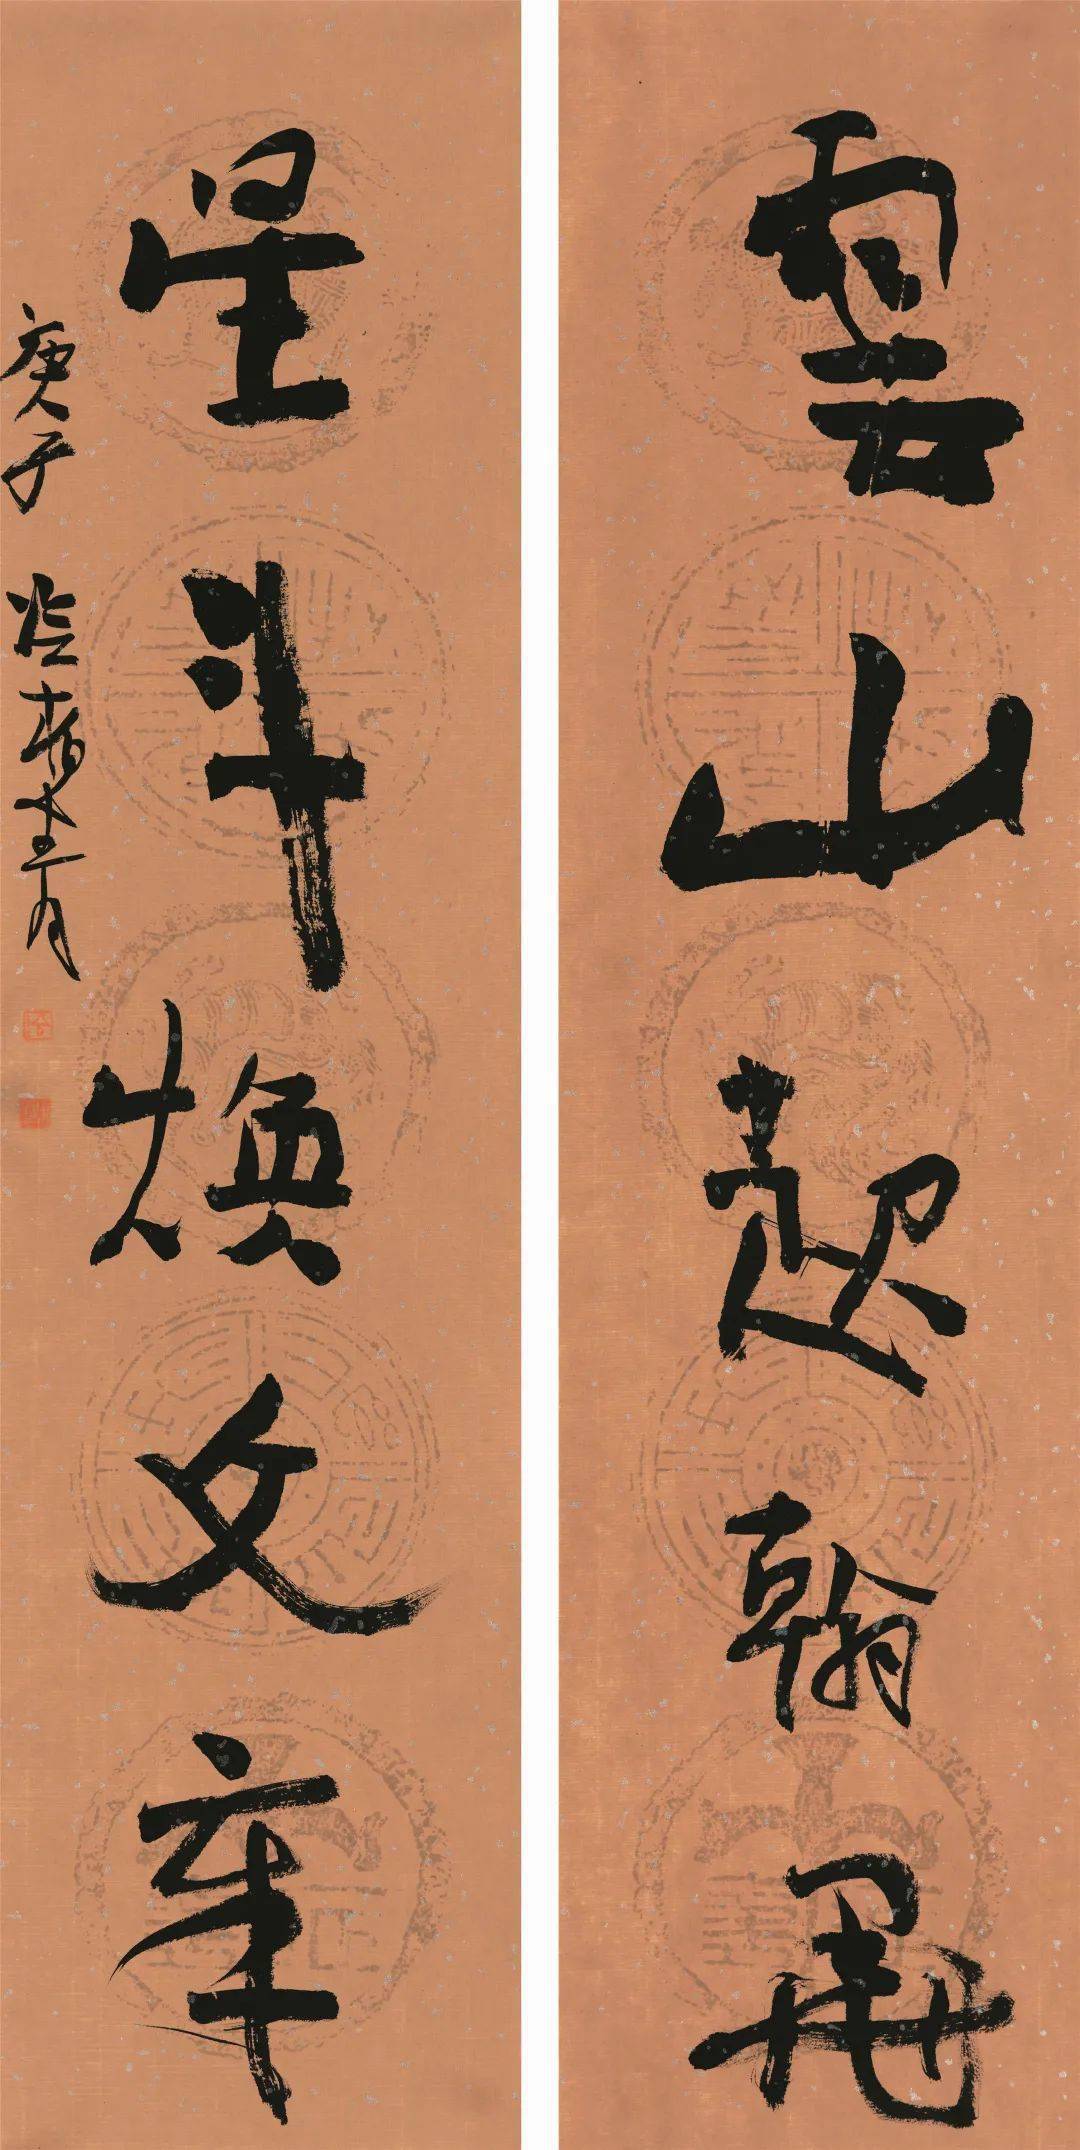 雲山起翰墨
星斗焕文章
庚子